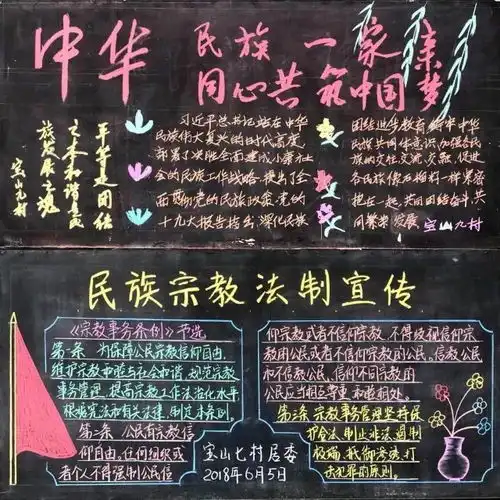 中华 民族一家亲
同心共筑中国梦
平等是团结
之本和谐是民
族发展之魂
宝山九村
习近平总书记站在中华
民族伟大复兴的时代高度
部署了决胜全面建成小康社
会的民族工作战略提出了全
面贯彻党的民族政策党的
十九大报告指出深化民族
团结进步教育铸牢中华
民族共同体意识加强各民
族的交往交流交融促进
各民族像石榴籽一样紧密
抱在一起共同团结奋斗共
同繁荣发展 宝山九村
民族宗教法制宣传
《宗教事务条例》节选
第一条 为保障公民宗教信仰自由,
维护宗教和睦与社会和谐,规范宗教
事务管理,提高宗教工作法治化水平
根据宪法和有关法律,制定本条例。
第二条 公民有宗教信
仰自由,任何组织或
者个人不得强制公民信
仰宗教或者不信仰宗教,不得歧视信仰宗
教的公民或者不信仰宗教的公民。信教公民
和不信教公民、信仰不同宗教的
公民应当相互尊重和睦相处。
第三条 宗教事务管理坚持保
护合法、制止非法、遏制
极端、抵御渗透、打
击犯罪的原则。
宝山七村居委
2018年6月5日